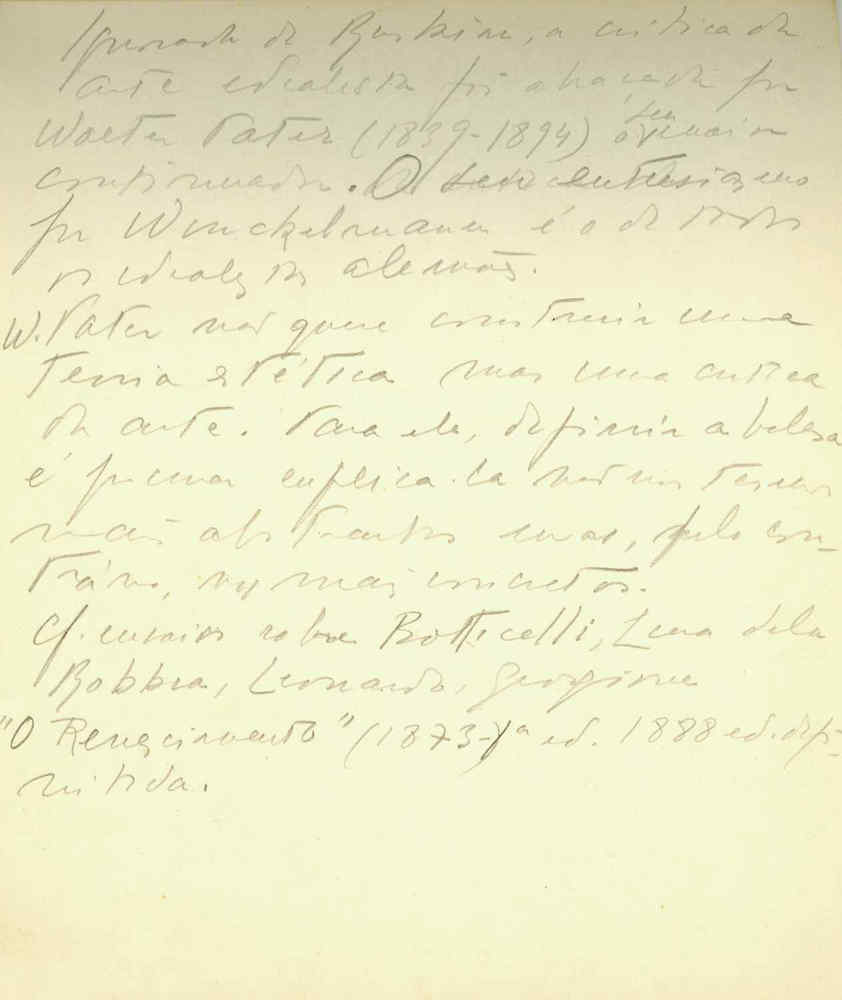 de Ruskin, a critica de
arte idealista foi abraçada por
Walter Pater (1839-1894) seu
continuador. O seu entusiasmo
por Winckelmann é o de todos
os idealistas alemães.
W. Pater não quere construir uma
teoria estética mas uma critica
de arte. Para ele, definir a beleza
é procurar explica-la não nos termos
mais abstractos mas, pelo con-
trário, nos mais concretos.
Cf. ensaios sobre Botticelli, Luca dela
Robbia, Leonardo, Giorgione
"O Renascimento" (1873-1ª ed. 1888 ed. defi-
nitida.